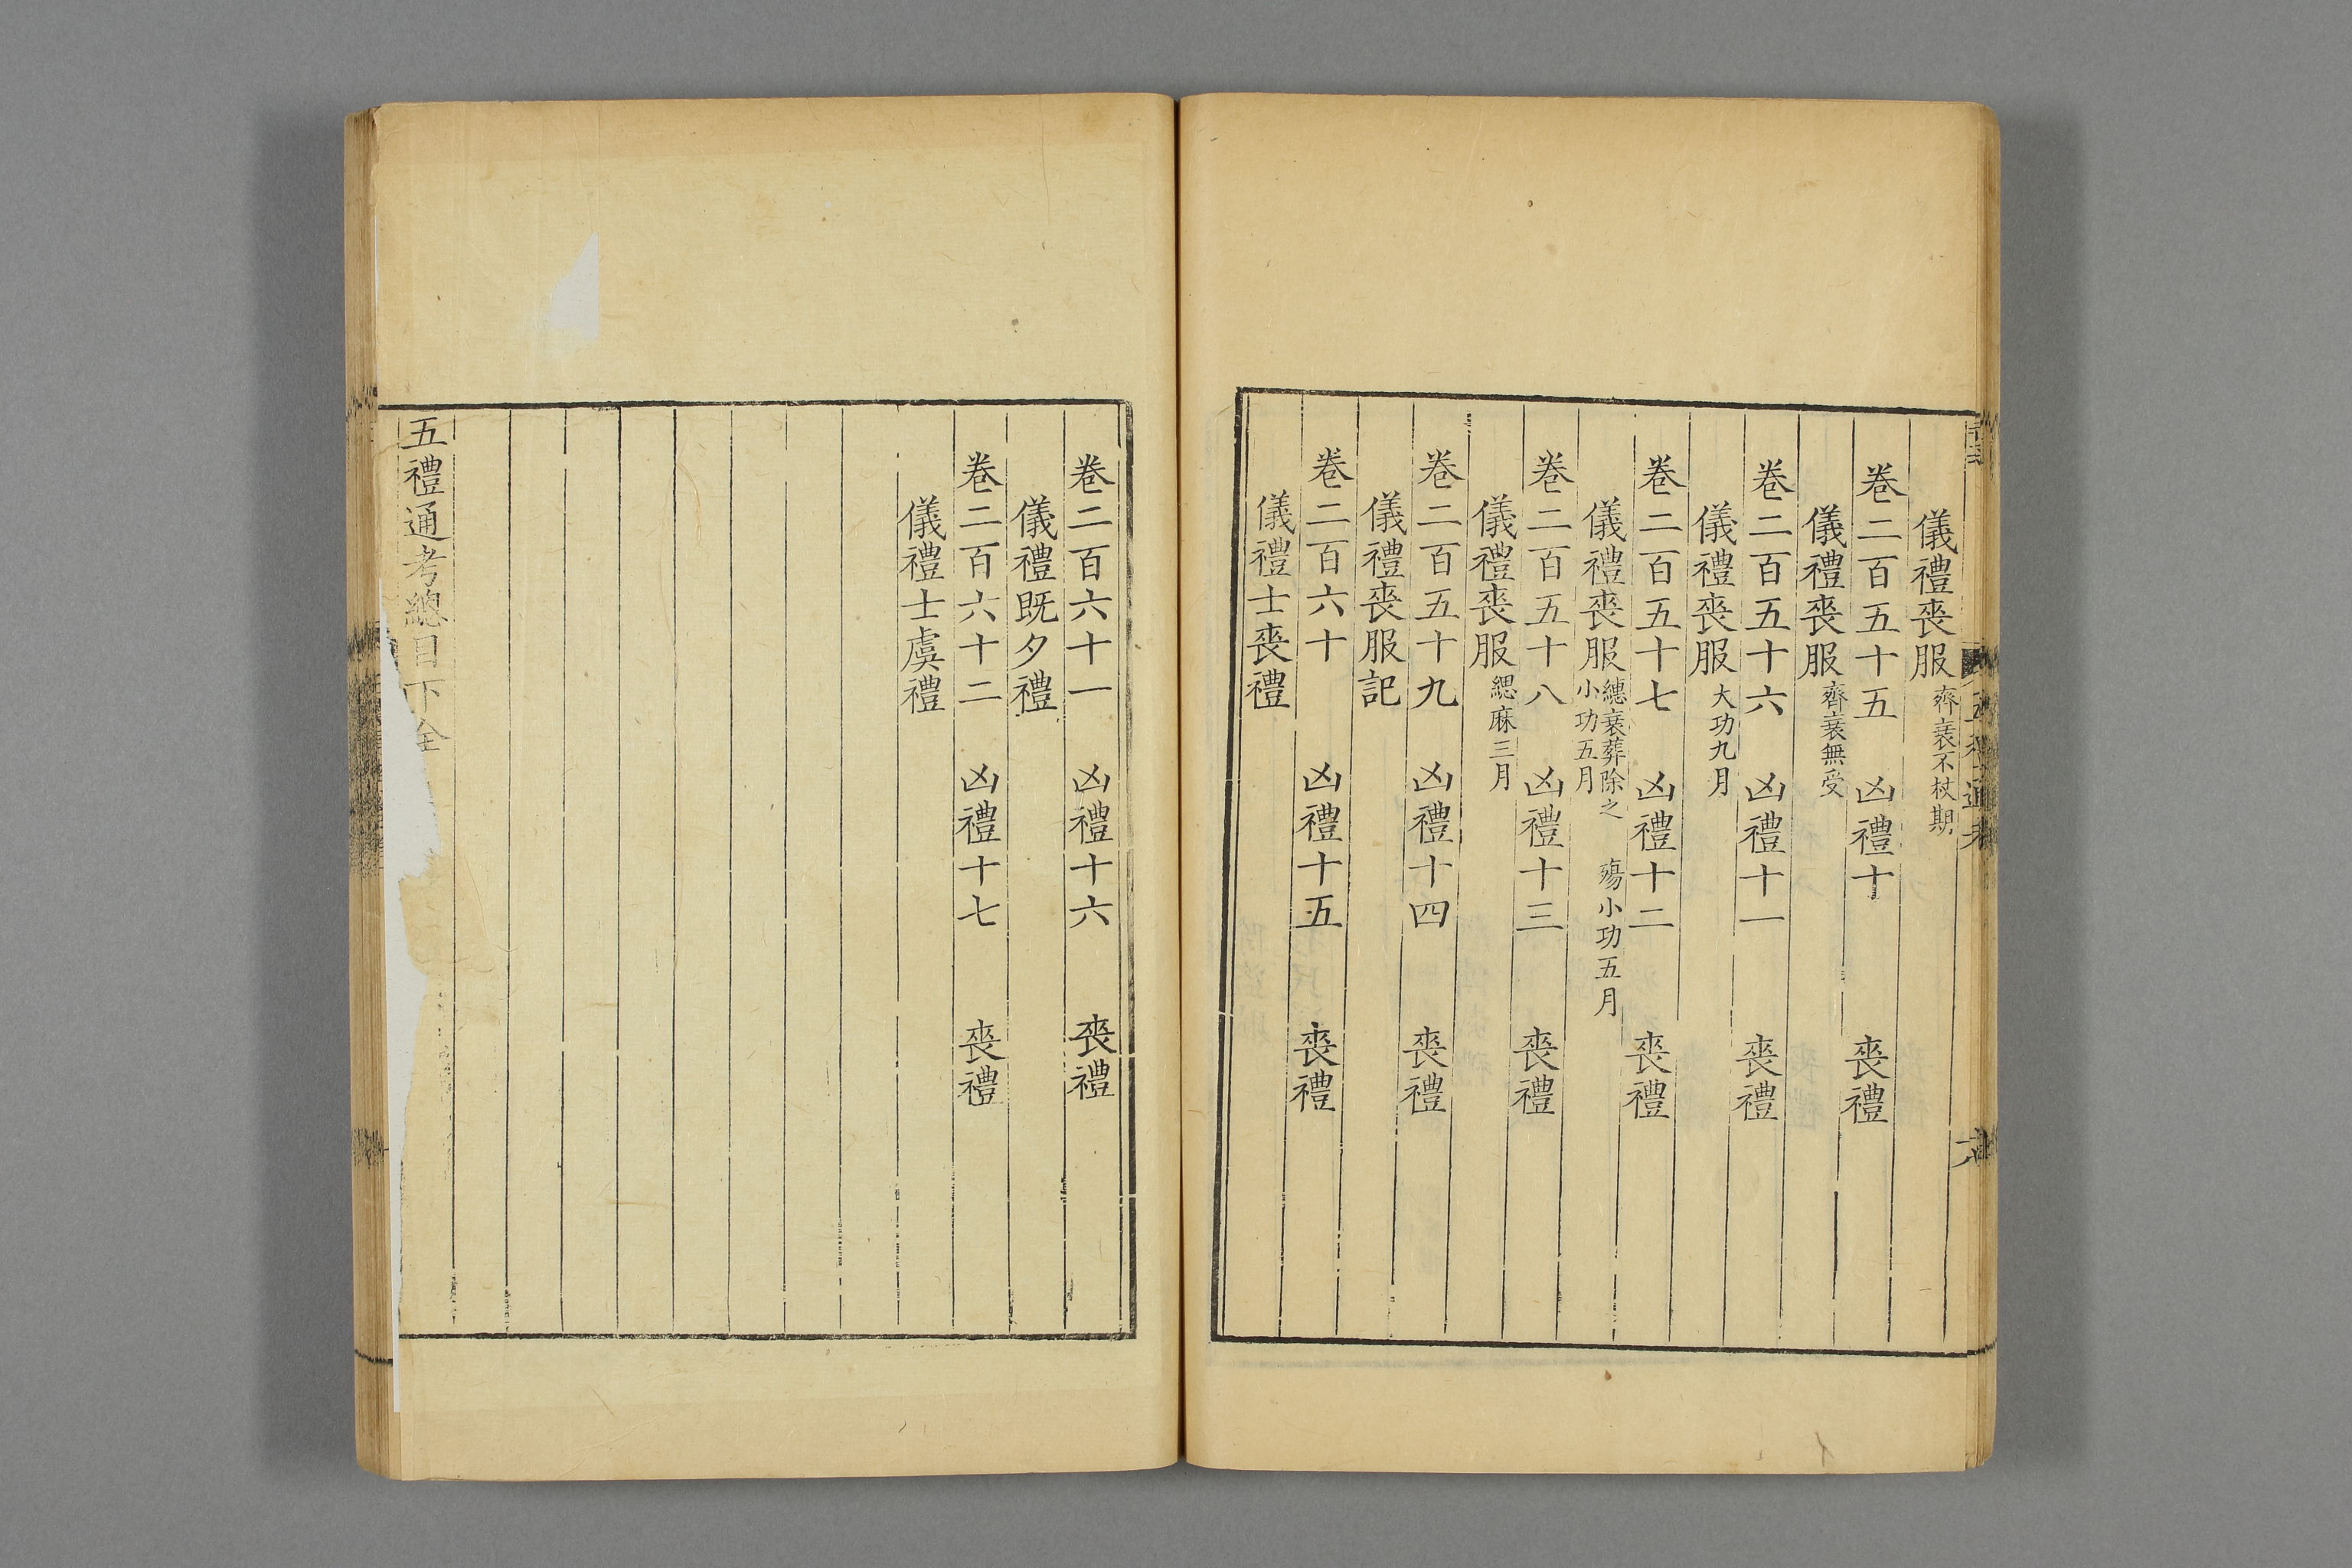 儀禮喪服齊衰不杖期
卷二百五十五　凶禮十　喪禮
儀禮喪服齊衰無受
卷二百五十六　凶禮十一　喪禮
儀禮喪服大功九月
卷二百五十七　凶禮十二　喪禮
儀禮喪服繐衰葬除之　殤小功五月
小功五月
卷二百五十八　凶禮十三　喪禮
儀禮喪服緦麻三月
卷二百五十九　凶禮十四　喪禮
儀禮喪服記
卷二百六十　凶禮十五　喪禮
儀禮士喪禮
卷二百六十一　凶禮十六　喪禮
儀禮既夕禮
卷二百六十二　凶禮十七　喪禮
儀禮士虞禮
五禮通考總目下全